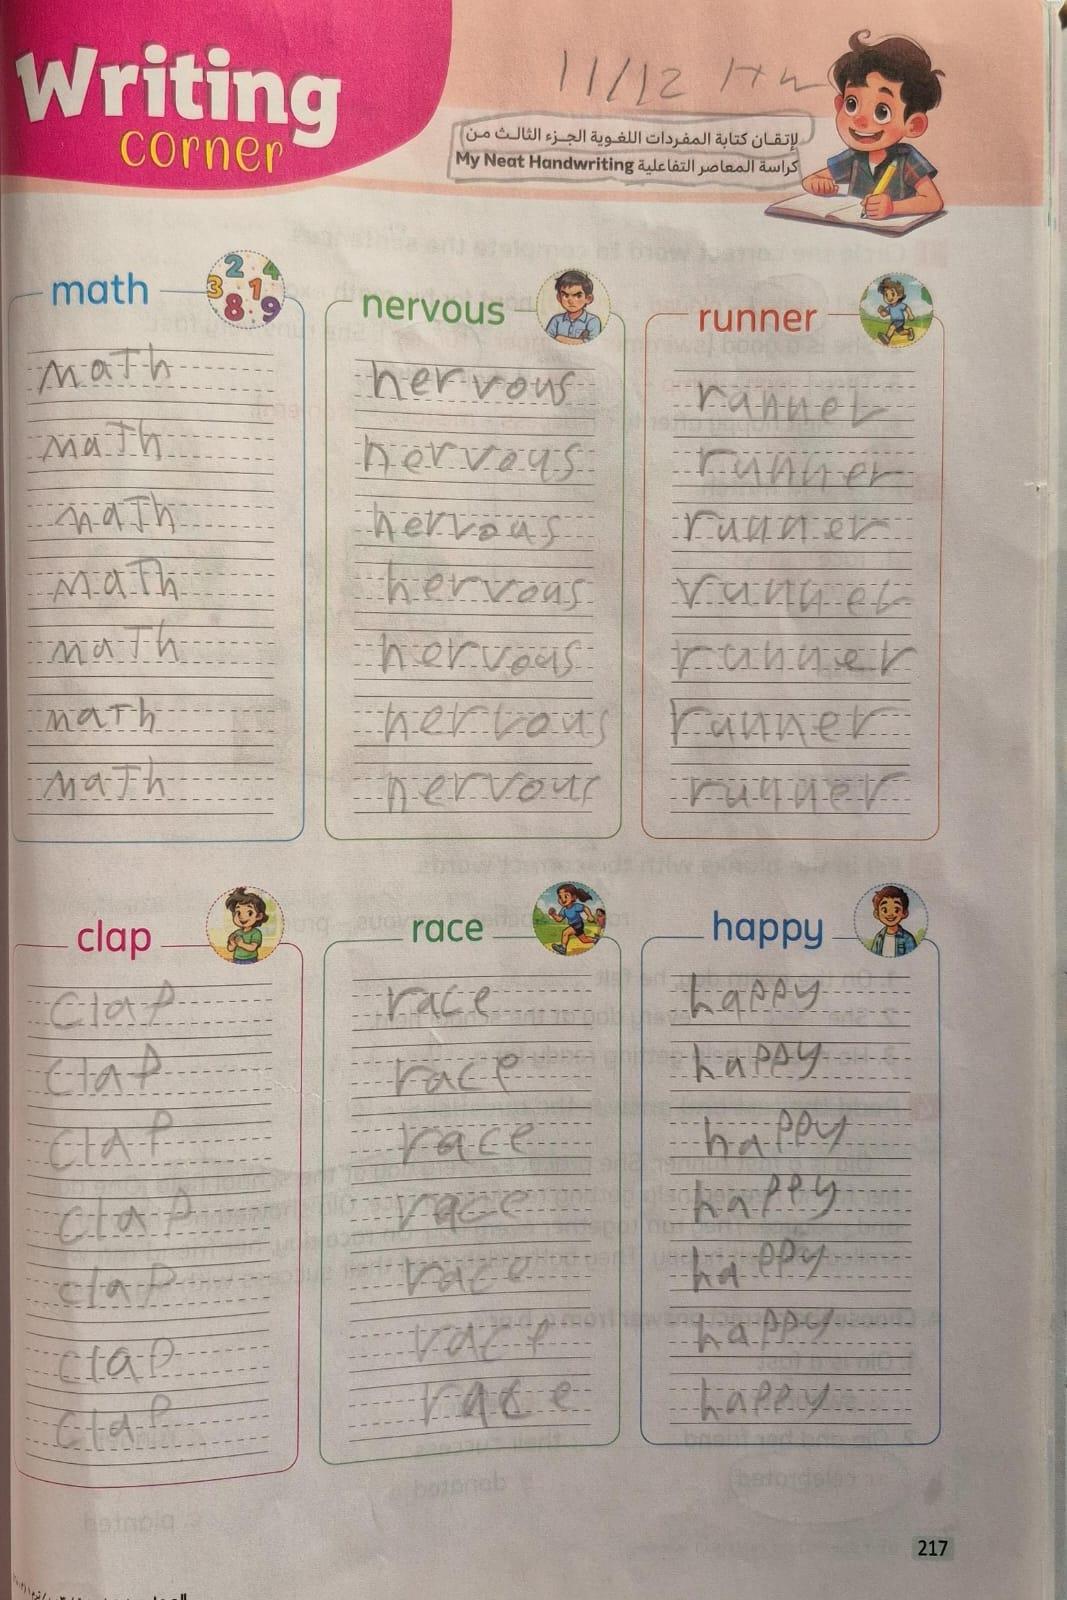 Writing
corner
11/12 Hw
لإتقـان كتابة المفردات اللغـوية الجـزء الثالـث مـن
كراسة المعاصر التفاعلية My Neat Handwriting
math
maTh
maTh
maTh
maTh
maTh
maTh
maTh
nervous
nervous
nervous
nervous
nervous
nervous
nervous
nervous
runner
runner
runner
runner
runner
runner
runner
runner
clap
clap
clap
clap
clap
clap
clap
clap
race
race
race
race
race
race
race
race
happy
happy
happy
happy
happy
happy
happy
happy
217